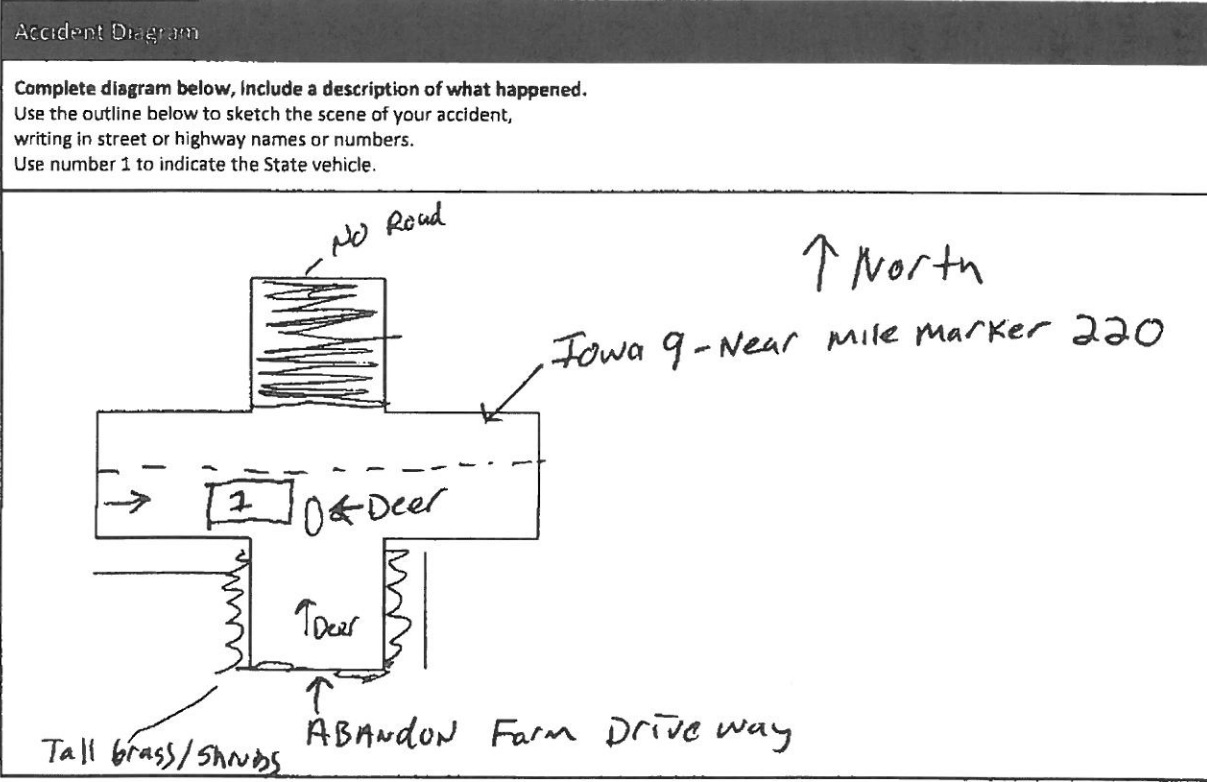 Accident Diagram
Complete diagram below, include a description of what happened.
Use the outline below to sketch the scene of your accident,
writing in street or highway names or numbers.
Use number 1 to indicate the State vehicle.
NO Road
North
Iowa 9 - Near Mile Marker 220
1
Deer
Deer
ABANDON Farm Driveway
Tall Grass/Shrubs